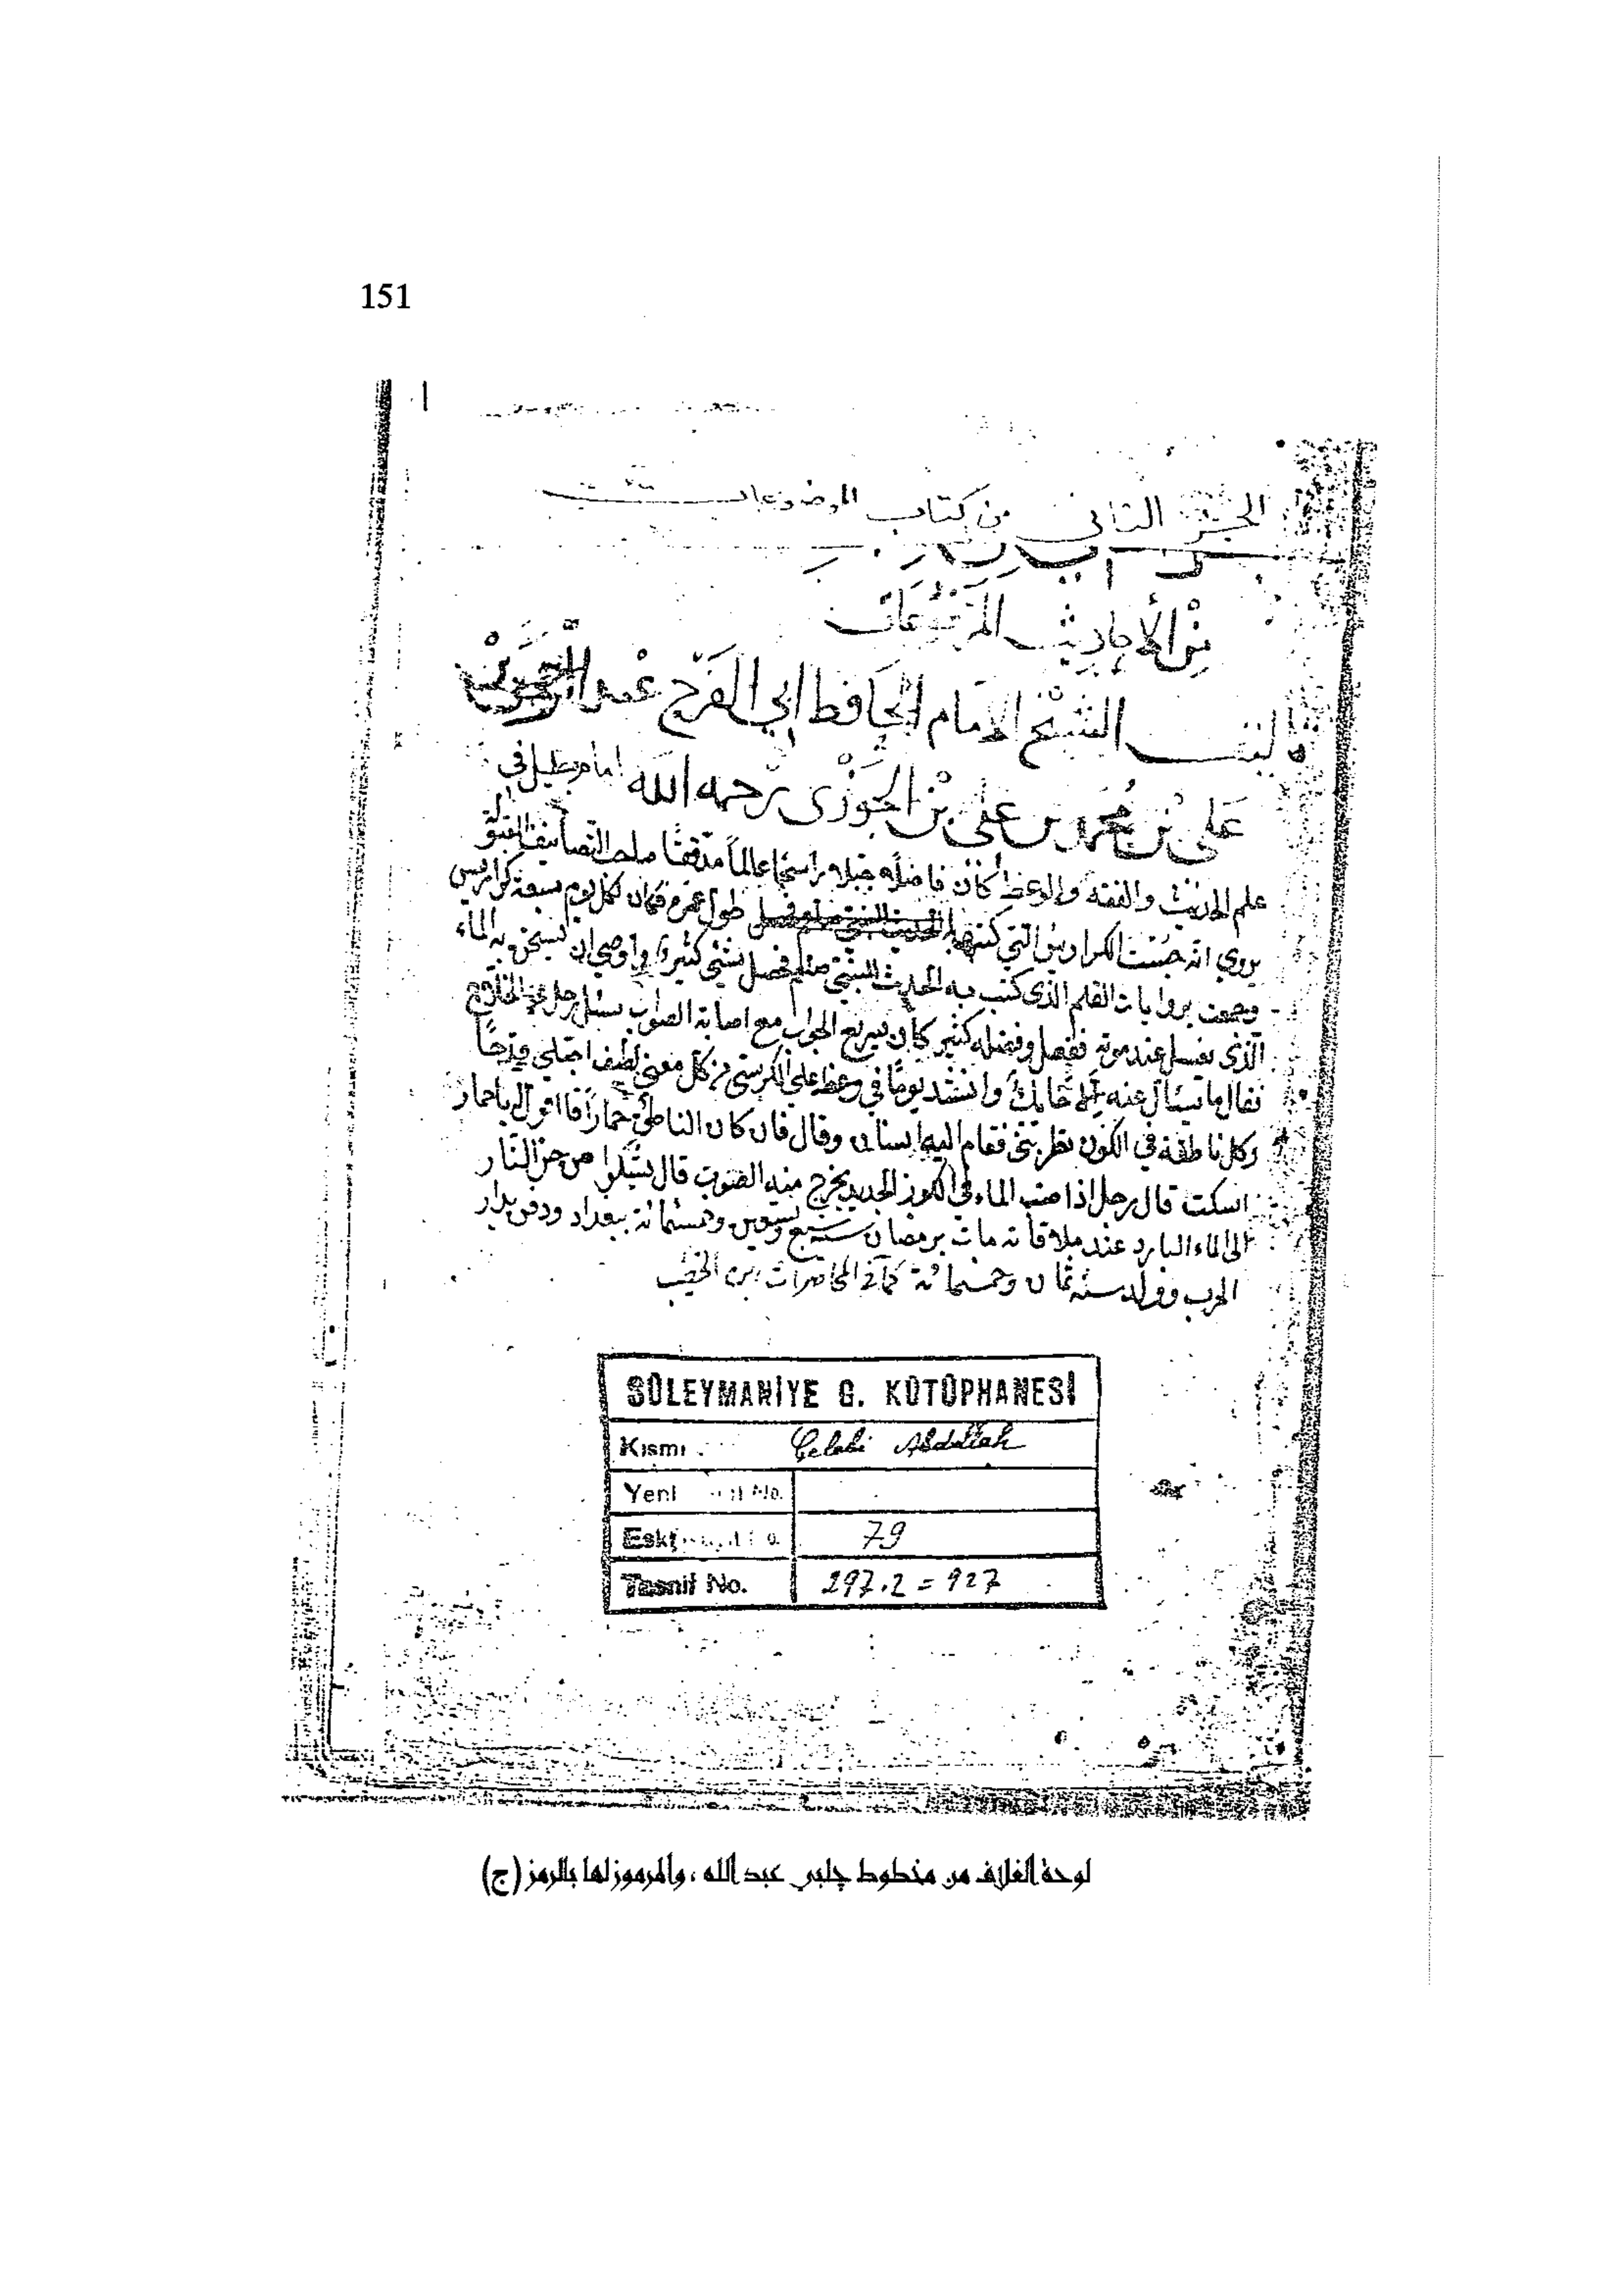 151
الجزء الثاني من كتاب الموضوعات
من الأحاديث المرفوعات
تأليف الشيخ الإمام الحافظ أبي الفرج عبد الرحمن بن
علي بن محمد بن علي بن الجوزي رحمه الله امام جليل في
علم الحديث والفقه والوعظ كان فاضلا عالما متقنا صاحب التصانيف
يروي انه جمعت الكراريس التي كتبها طول عمره فكان لكل يوم تسعة كراريس
وجمعت برايات القلم الذي كتب به الحديث فحصل شئ كثير واوصى ان يسخن به الماء
الذي يغسل عند موته ففعل وفضله كثير كان سريع الجواب مع اصابة الصواب سئل رجل
فقال ما تسأل عنه وانشد يوما في وعظه على الكرسي من كل معنى لطيف اجتلي قدحا
وكل ناطقة في الكون تطربني فقام اليه انسان وقال فان كان الناطق حمارا قال اقول يا حمار
اسكت قال رجل اذا صب الماء في الكوز الجديد يخرج منه الصوت قال يشكوا من حر النار
الى الماء البارد عند ملاقاته مات برمضان سنة سبع وتسعين وخمسمائة ببغداد ودفن بدار
الحرب وولد سنة ثمان وخمسمائة كما في المحاضرات
SÜLEYMANİYE G. KÜTÜPHANESİ
Kısmı Çelebi Abdullah
Yeni No.
Eski 79
Tasnif No. 297.2 = 927
لوحة الغلاف من مخطوط چلبي عبد الله ، والمرموز لها بالرمز (ج)